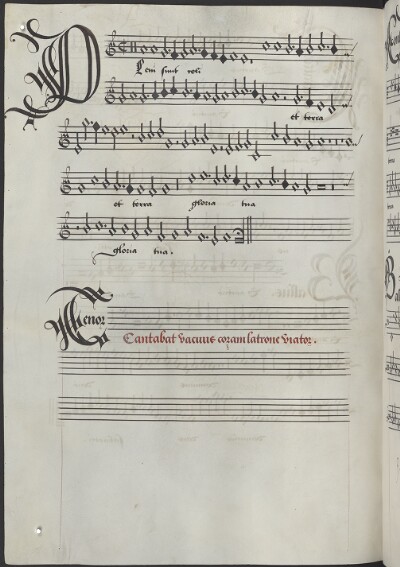 Pleni sunt celi
et terra
et terra gloria tua
gloria tua.
Tenor
Cantabat vacuus coram latrone viator.